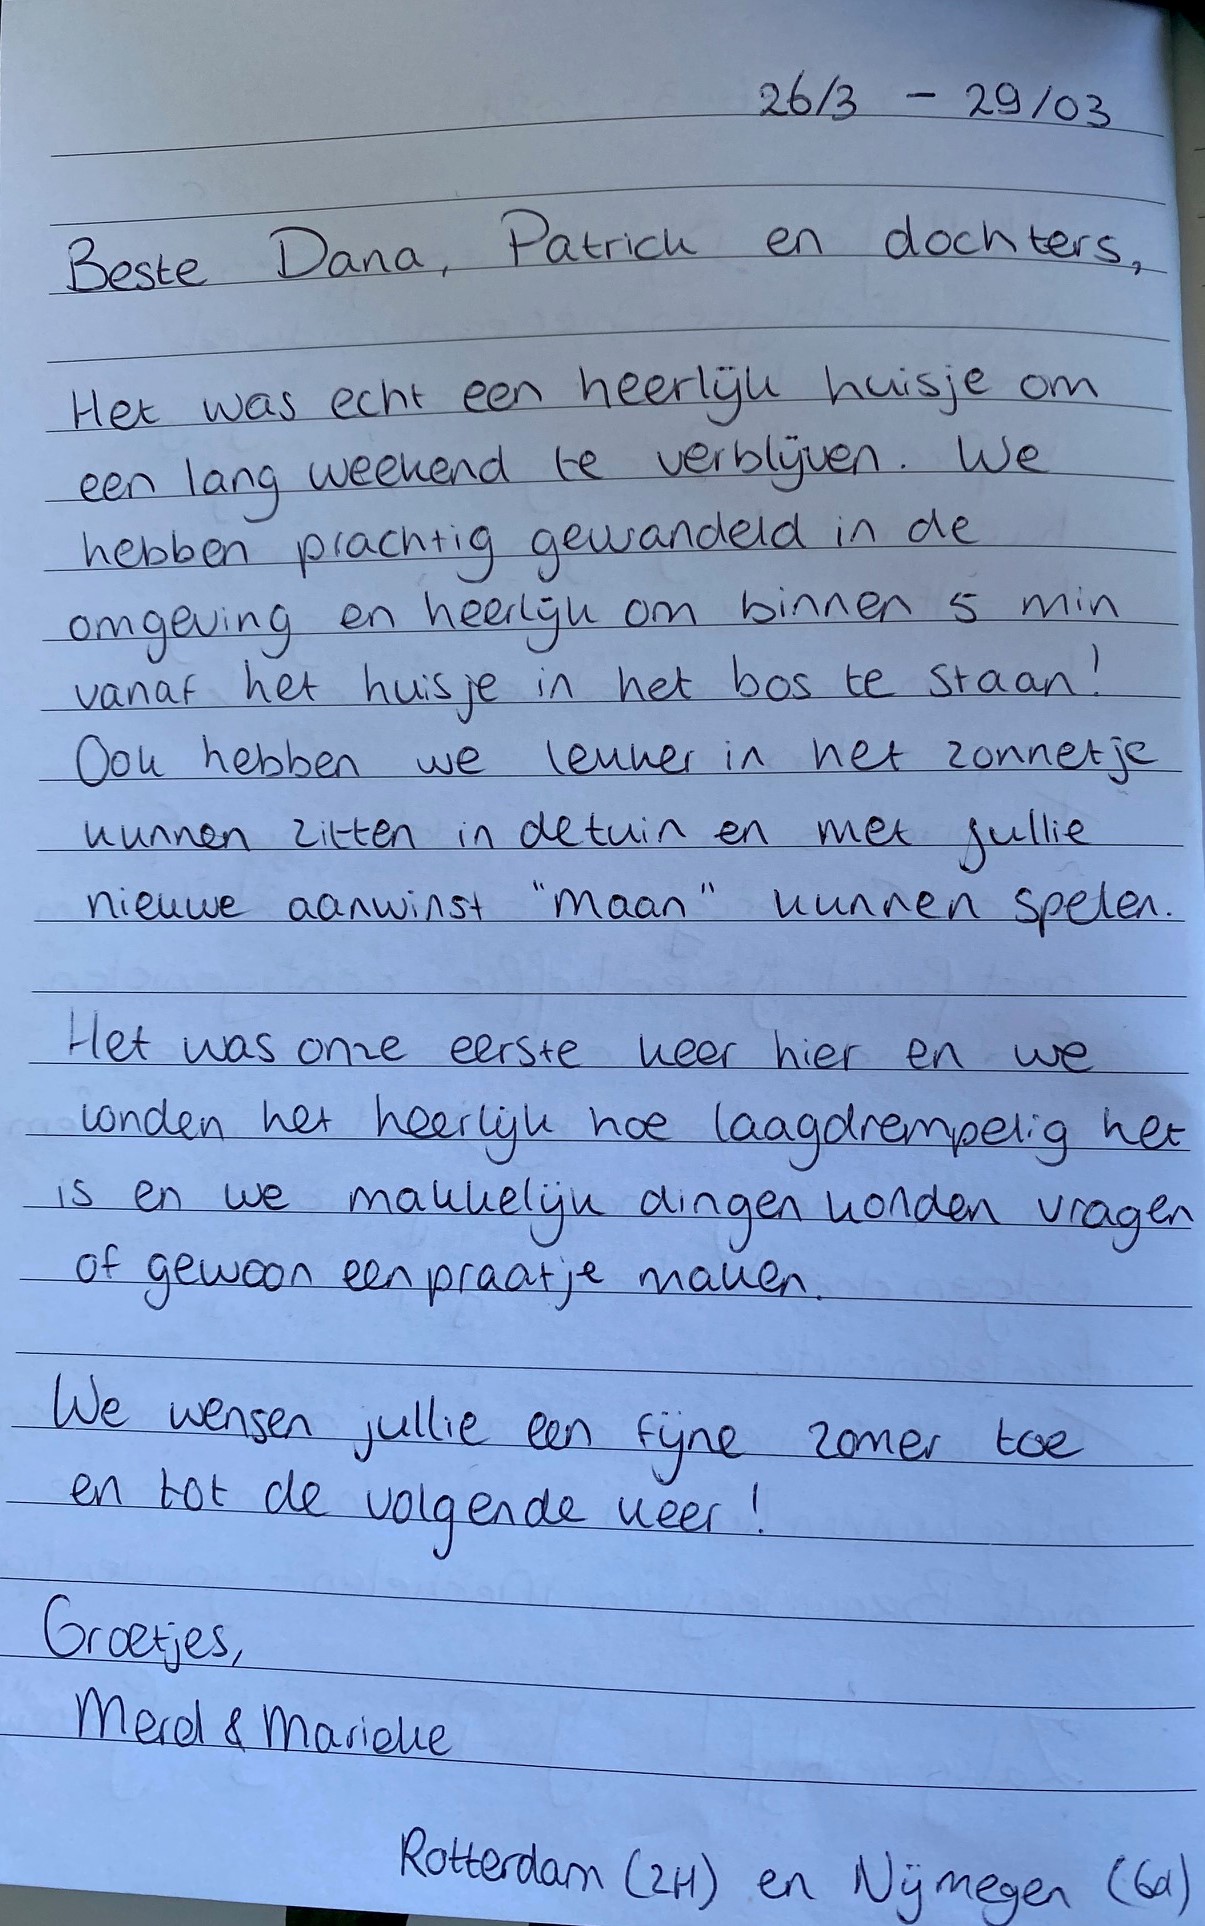 26/3 - 29/03
Beste Dana, Patrick en dochters,
Het was echt een heerlijk huisje om
een lang weekend te verblijven. We
hebben prachtig gewandeld in de
omgeving en heerlijk om binnen 5 min
vanaf het huisje in het bos te staan!
Ook hebben we lekker in het zonnetje
kunnen zitten in de tuin en met jullie
nieuwe aanwinst "maan" kunnen spelen.
Het was onze eerste keer hier en we
vonden het heerlijk hoe laagdrempelig het
is en we makkelijk dingen konden vragen
of gewoon een praatje maken.
We wensen jullie een fijne zomer toe
en tot de volgende keer!
Groetjes,
& Marieke
Rotterdam (ZH) en Nijmegen (Gd)